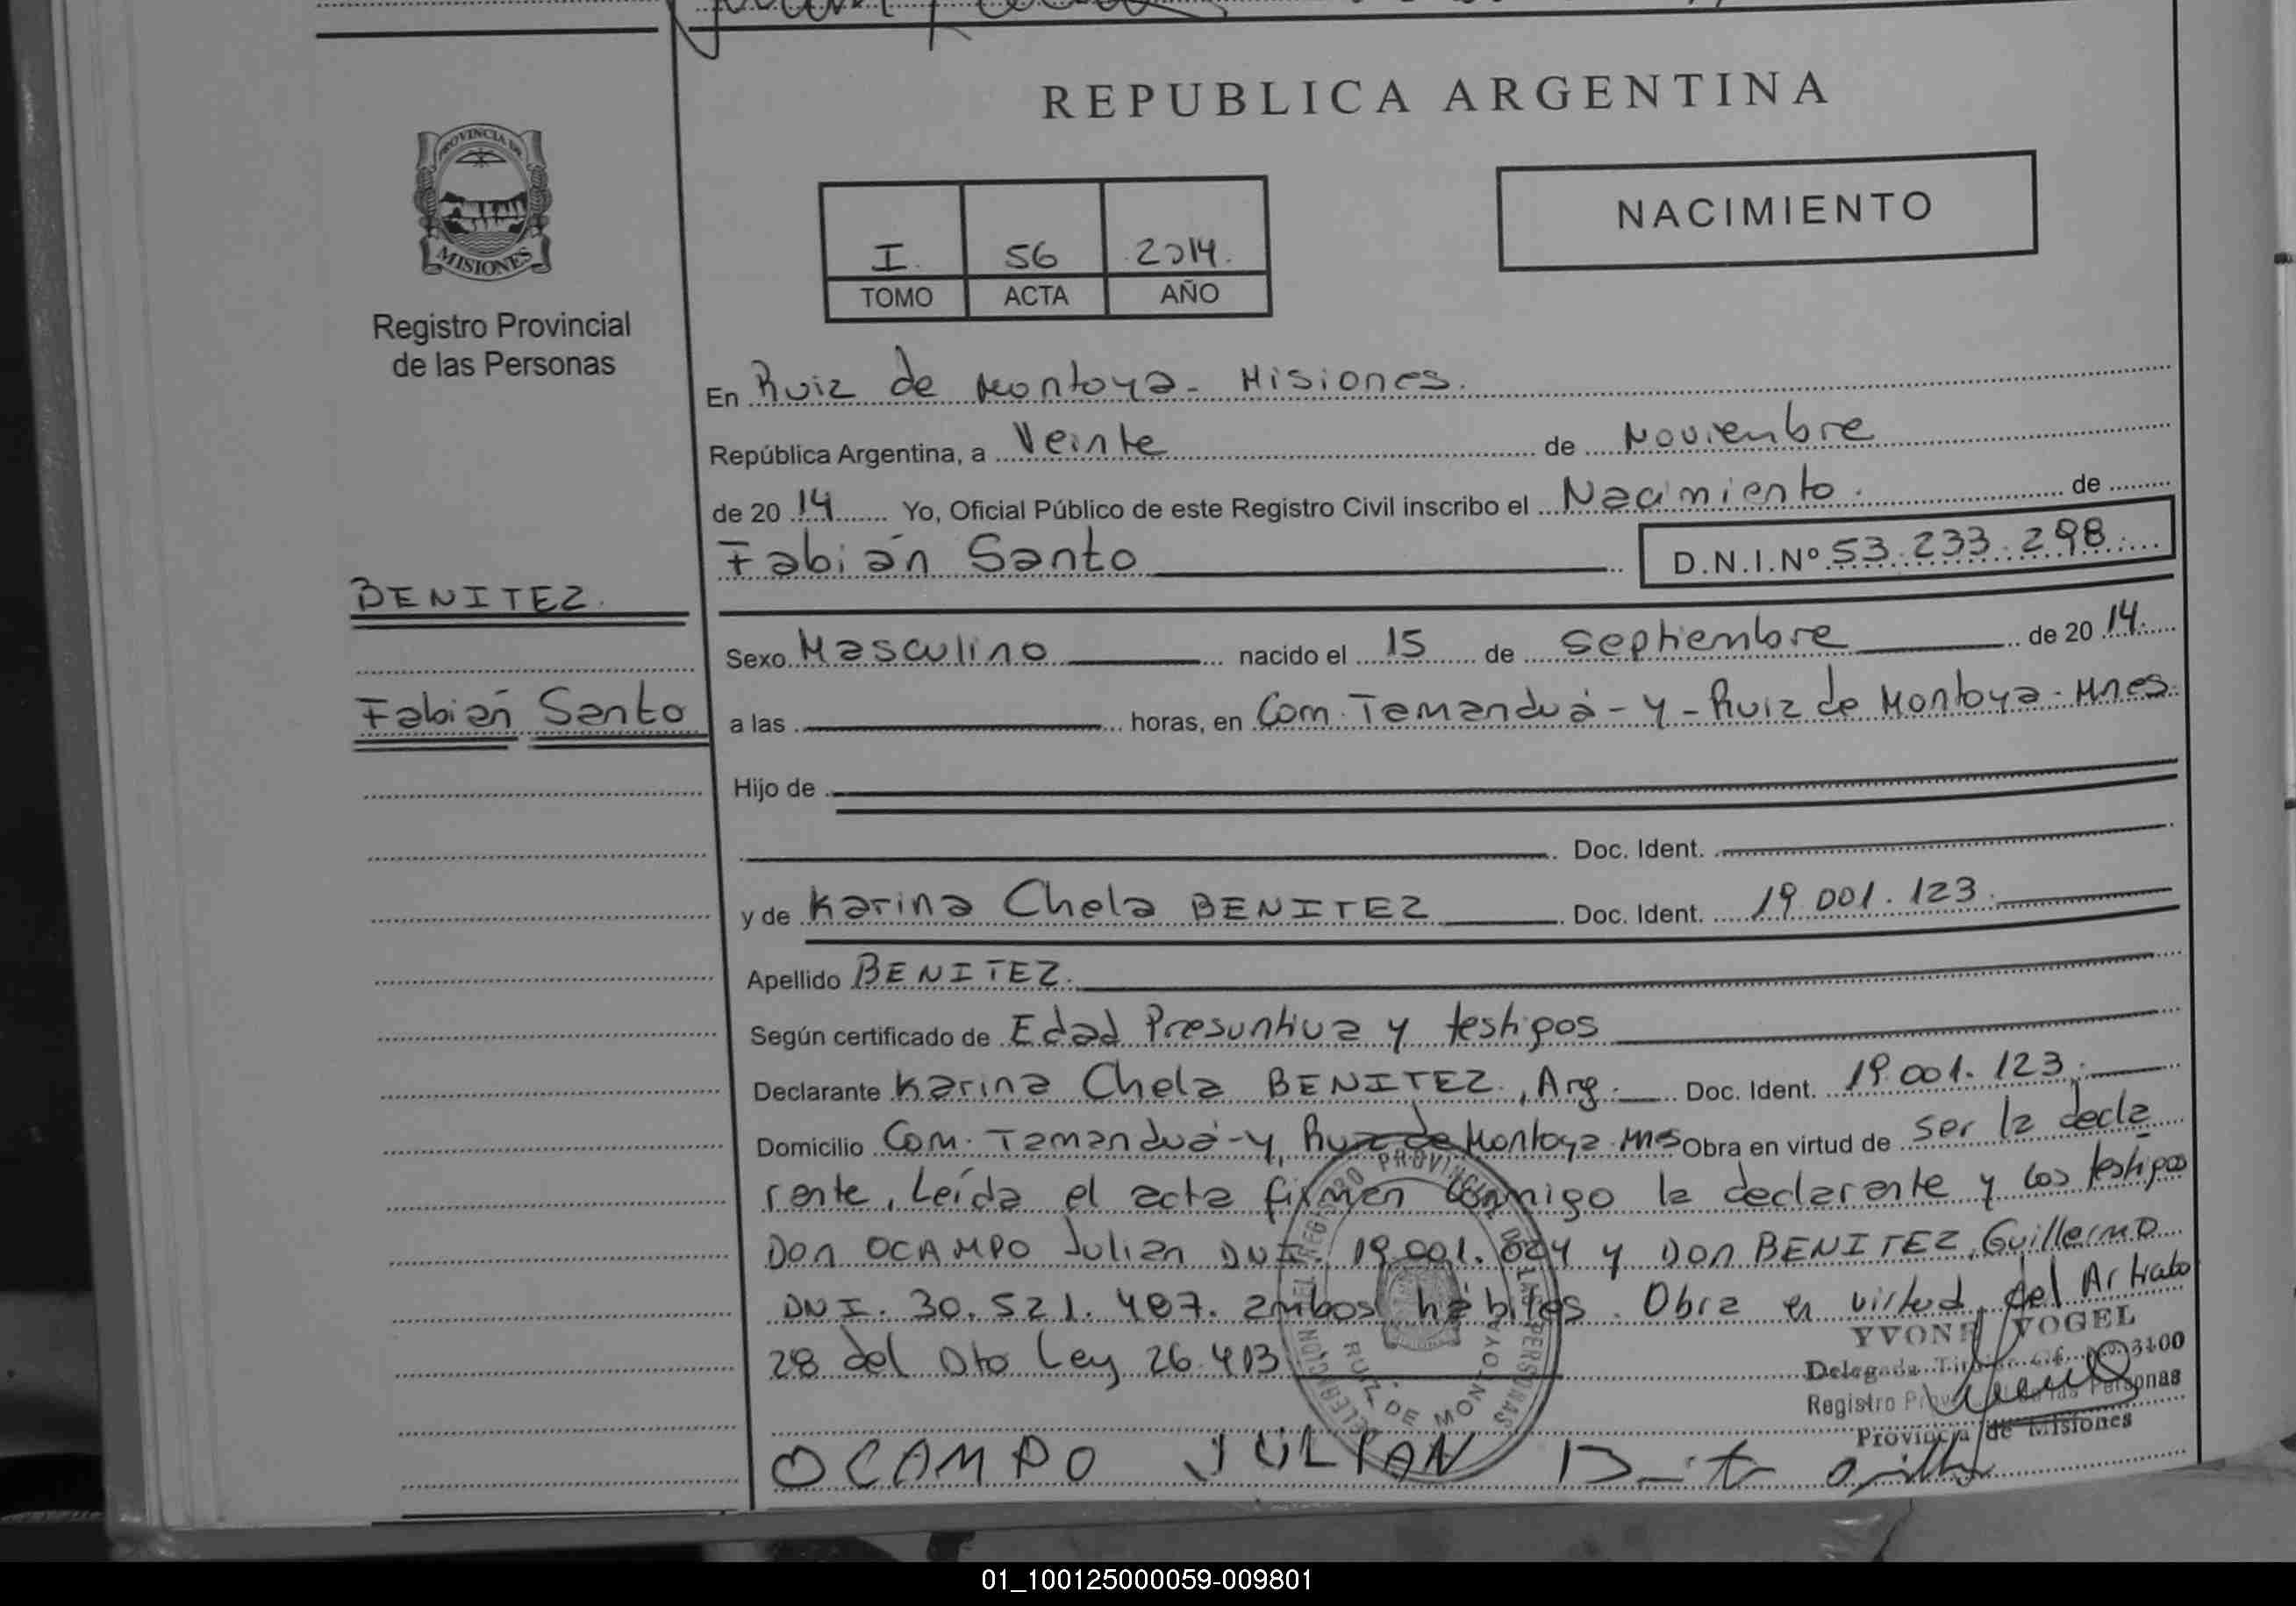 REPUBLICA ARGENTINA
PROVINCIA DE
MISIONES
Registro Provincial
de las Personas
NACIMIENTO
I. 56 2014.
TOMO ACTA AÑO
En Ruiz de Montoya - Misiones.
República Argentina, a Veinte de Noviembre
de 20 14 Yo, Oficial Público de este Registro Civil inscribo el Nacimiento. de
Fabián Santo D.N.I.Nº 53.233.298.
BENITEZ.
Sexo Masculino nacido el 15 de Septiembre de 20 14.
Fabián Santo
a las horas, en Com. Tamanduá - y - Ruiz de Montoya - Mnes.
Hijo de
Doc. Ident.
y de Karina Chela BENITEZ Doc. Ident. 19.001.123.
Apellido BENITEZ.
Según certificado de Edad Presuntiva y testigos
Declarante Karina Chela BENITEZ, Arg. Doc. Ident. 19.001.123.
Domicilio Com. Tamanduá - y, Ruiz de Montoya Mnes Obra en virtud de ser la decla
rante, Leída el acta firman conmigo la declarante y los testigos
DON OCAMPO Julian DNI. 19.001. y DON BENITEZ, Guillermo
DNI. 30.521.487. ambos hábiles. Obra en virtud del Articulo
28 del Dto Ley 26.413
YVONE VOGEL
Delegada 3400
Registro Personas
Provincia de Misiones
RUIZ DE MONTOYA
OCAMPO JULIAN
01_100125000059-009801